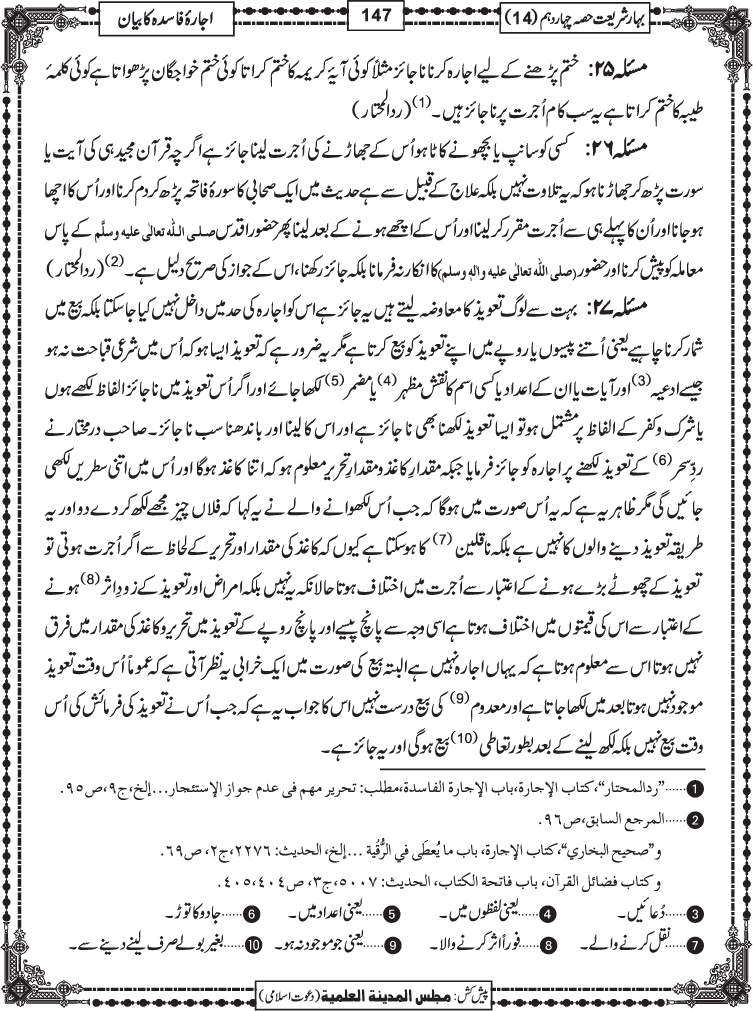 بہار شریعت حصہ چہاردہم (14)
147
اجارۂ فاسدہ کا بیان
مسئلہ ۲۵: ختم پڑھنے کے لیے اجارہ کرنا ناجائز مثلاً کوئی آیۂ کریمہ کا ختم کراتا کوئی ختم خواجگان پڑھواتا ہے کوئی کلمۂ
طیبہ کا ختم کراتا ہے یہ سب کام اُجرت پر ناجائز ہیں۔(1) (ردالمحتار)
مسئلہ ۲۶: کسی کو سانپ یا بچھو نے کاٹا ہو اُس کے جھاڑنے کی اُجرت لینا جائز ہے اگرچہ قرآن مجید ہی کی آیت یا
سورت پڑھ کر جھاڑنا ہو کہ یہ تلاوت نہیں بلکہ علاج کے قبیل سے ہے حدیث میں ایک صحابی کا سورۂ فاتحہ پڑھ کر دم کرنا اور اُس کا اچھا
ہو جانا اور اُن کا پہلے ہی سے اُجرت مقرر کر لینا اور اُس کے اچھے ہونے کے بعد لینا پھر حضور اقدس صلی اللہ تعالی علیہ وسلَّم کے پاس
معاملہ کو پیش کرنا اور حضور (صلی اللہ تعالی علیہ والہٖ وسلم) کا انکار نہ فرمانا بلکہ جائز رکھنا، اس کے جواز کی صریح دلیل ہے۔(2) (ردالمحتار)
مسئلہ ۲۷: بہت سے لوگ تعویذ کا معاوضہ لیتے ہیں یہ جائز ہے اس کو اجارہ کی حد میں داخل نہیں کیا جا سکتا بلکہ بیع میں
شمار کرنا چاہیے یعنی اُتنے پیسوں یا روپے میں اپنے تعویذ کو بیع کرتا ہے مگر یہ ضرور ہے کہ تعویذ ایسا ہو کہ اُس میں شرعی قباحت نہ ہو
جیسے ادعیہ (3) اور آیات یا ان کے اعداد یا کسی اسم کا نقش مظہر (4) یا مضمر (5) لکھا جائے اور اگر اُس تعویذ میں ناجائز الفاظ لکھے ہوں
یا شرک و کفر کے الفاظ پر مشتمل ہو تو ایسا تعویذ لکھنا بھی ناجائز ہے اور اس کا لینا اور باندھنا سب ناجائز۔ صاحب درمختار نے
ردِّ سحر (6) کے تعویذ لکھنے پر اجارہ کو جائز فرمایا جبکہ مقدارِ کاغذ و مقدارِ تحریر معلوم ہو کہ اتنا کاغذ ہوگا اور اُس میں اتنی سطریں لکھی
جائیں گی مگر ظاہر یہ ہے کہ یہ اُس صورت میں ہوگا کہ جب اُس لکھوانے والے نے یہ کہا کہ فلاں چیز مجھے لکھ کر دے دو اور یہ
طریقہ تعویذ دینے والوں کا نہیں ہے بلکہ ناقلین (7) کا ہو سکتا ہے کیوں کہ کاغذ کی مقدار اور تحریر کے لحاظ سے اگر اُجرت ہوتی تو
تعویذ کے چھوٹے بڑے ہونے کے اعتبار سے اُجرت میں اختلاف ہوتا حالانکہ یہ نہیں بلکہ امراض اور تعویذ کے زود اثر (8) ہونے
کے اعتبار سے اس کی قیمتوں میں اختلاف ہوتا ہے اسی وجہ سے پانچ پیسے اور پانچ روپے کے تعویذ میں تحریر و کاغذ کی مقدار میں فرق
نہیں ہوتا اس سے معلوم ہوتا ہے کہ یہاں اجارہ نہیں ہے البتہ بیع کی صورت میں ایک خرابی یہ نظر آتی ہے کہ عموماً اُس وقت تعویذ
موجود نہیں ہوتا بعد میں لکھا جاتا ہے اور معدوم (9) کی بیع درست نہیں اس کا جواب یہ ہے کہ جب اُس نے تعویذ کی فرمائش کی اُس
وقت بیع نہیں بلکہ لکھ لینے کے بعد بطور تعاطی (10) بیع ہوگی اور یہ جائز ہے۔
1......"ردالمحتار"، کتاب الإجارة، باب الإجارة الفاسدة، مطلب: تحریر مہم فی عدم جواز الإستئجار...إلخ، ج۹، ص۹۵.
2......المرجع السابق، ص۹۶.
و"صحیح البخاري"، کتاب الإجارة، باب ما یُعطَی في الرُّقْیة...إلخ، الحدیث: ۲۲۷۶، ج۲، ص۶۹.
وکتاب فضائل القرآن، باب فاتحة الکتاب، الحدیث: ۵۰۰۷، ج۳، ص۴۰۴،۴۰۵.
3......دُعائیں۔ 4......یعنی لفظوں میں۔ 5......یعنی اعداد میں۔ 6......جادو کا توڑ۔
7......نقل کرنے والے۔ 8......فوراً اثر کرنے والا۔ 9......یعنی جو موجود نہ ہو۔ 10......بغیر بولے صرف لینے دینے سے۔
پیش کش: مجلس المدینة العلمیة (دعوت اسلامی)